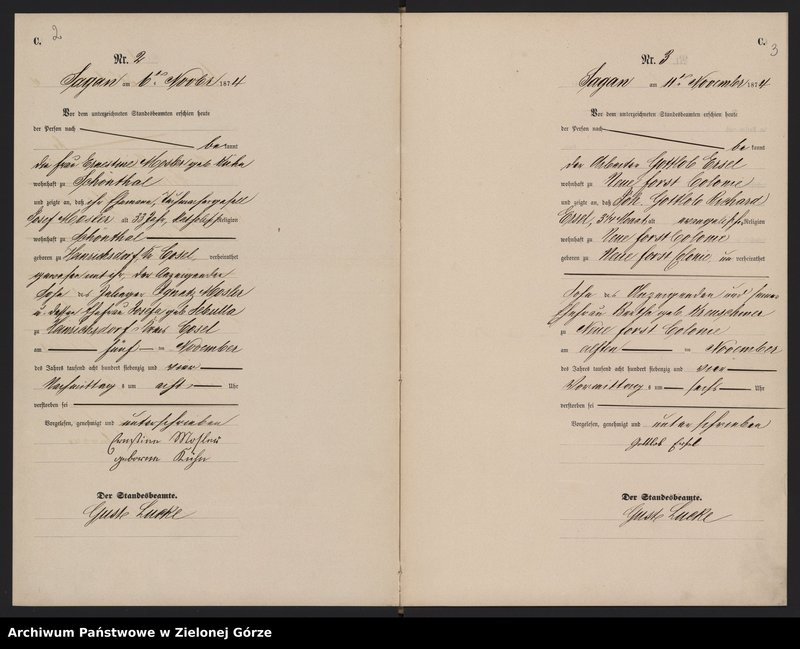 C. 2
Nr. 2
Sagan am 6ten Novber 1874
Vor dem unterzeichneten Standesbeamten erschien heute
der Person nach
bekannt
die Frau Ernestine Mosler geb. Kuhn
wohnhaft zu Schönthal
und zeigte an, daß ihr Ehemann, Tuchmachergesell
Josef Mosler alt 33 Jahr, katholischer Religion
wohnhaft zu Schönthal
geboren zu Hennrichsdorf Kr. Cosel, verheirathet
gewesen mit ihr, der Anzeigenden
Sohn des Ignatz Mosler
u. dessen Ehefrau Josefa geb.
zu Hennrichsdorf Kreis Cosel
am fünf ten November
des Jahres tausend acht hundert siebenzig und vier
Nachmittag s um acht Uhr
verstorben sei
Vorgelesen, genehmigt und unterschrieben
Ernstine Mosler
geborene Kuhn
Der Standesbeamte.
Gust. Lucke
C. 3
Nr. 3
Sagan am 11ten November 1874
Vor dem unterzeichneten Standesbeamten erschien heute
der Person nach
bekannt
der Arbeiter Gottlob Ersel
wohnhaft zu Neue forst Colonie
und zeigte an, daß Joh. Gottlob Richard
Ersel, alt evangelischer Religion
wohnhaft zu Neue forst Colonie
geboren zu Neue forst Colonie un verheirathet
Sohn des Anzeigenden und seiner
Ehefrau geb. Kreuschmer
zu Neue forst Colonie
am elften ten November
des Jahres tausend acht hundert siebenzig und vier
Vormittag s um sechs Uhr
verstorben sei
Vorgelesen, genehmigt und unterschrieben
Gottlob
Der Standesbeamte.
Gust. Lucke
Archiwum Państwowe w Zielonej Górze